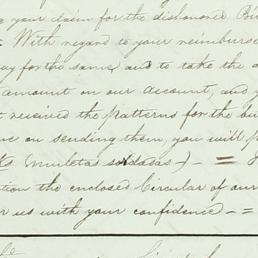 your claim for the dishonored Bi
With regard to your reimburse
ay for the same, and to take the
amount on our account, and y
received the patterns for the bu
on sending them, you will p
ts muletas soldadas) - =
tion the enclosed Circular of our
r us with your confidence - =